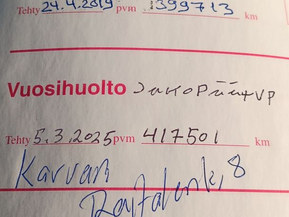 Tehty 24.4.2019 pvm 1399713 km
Vuosihuolto JakoPää+VP
Tehty 5.3.2025 pvm 417501 km
Karvan
8